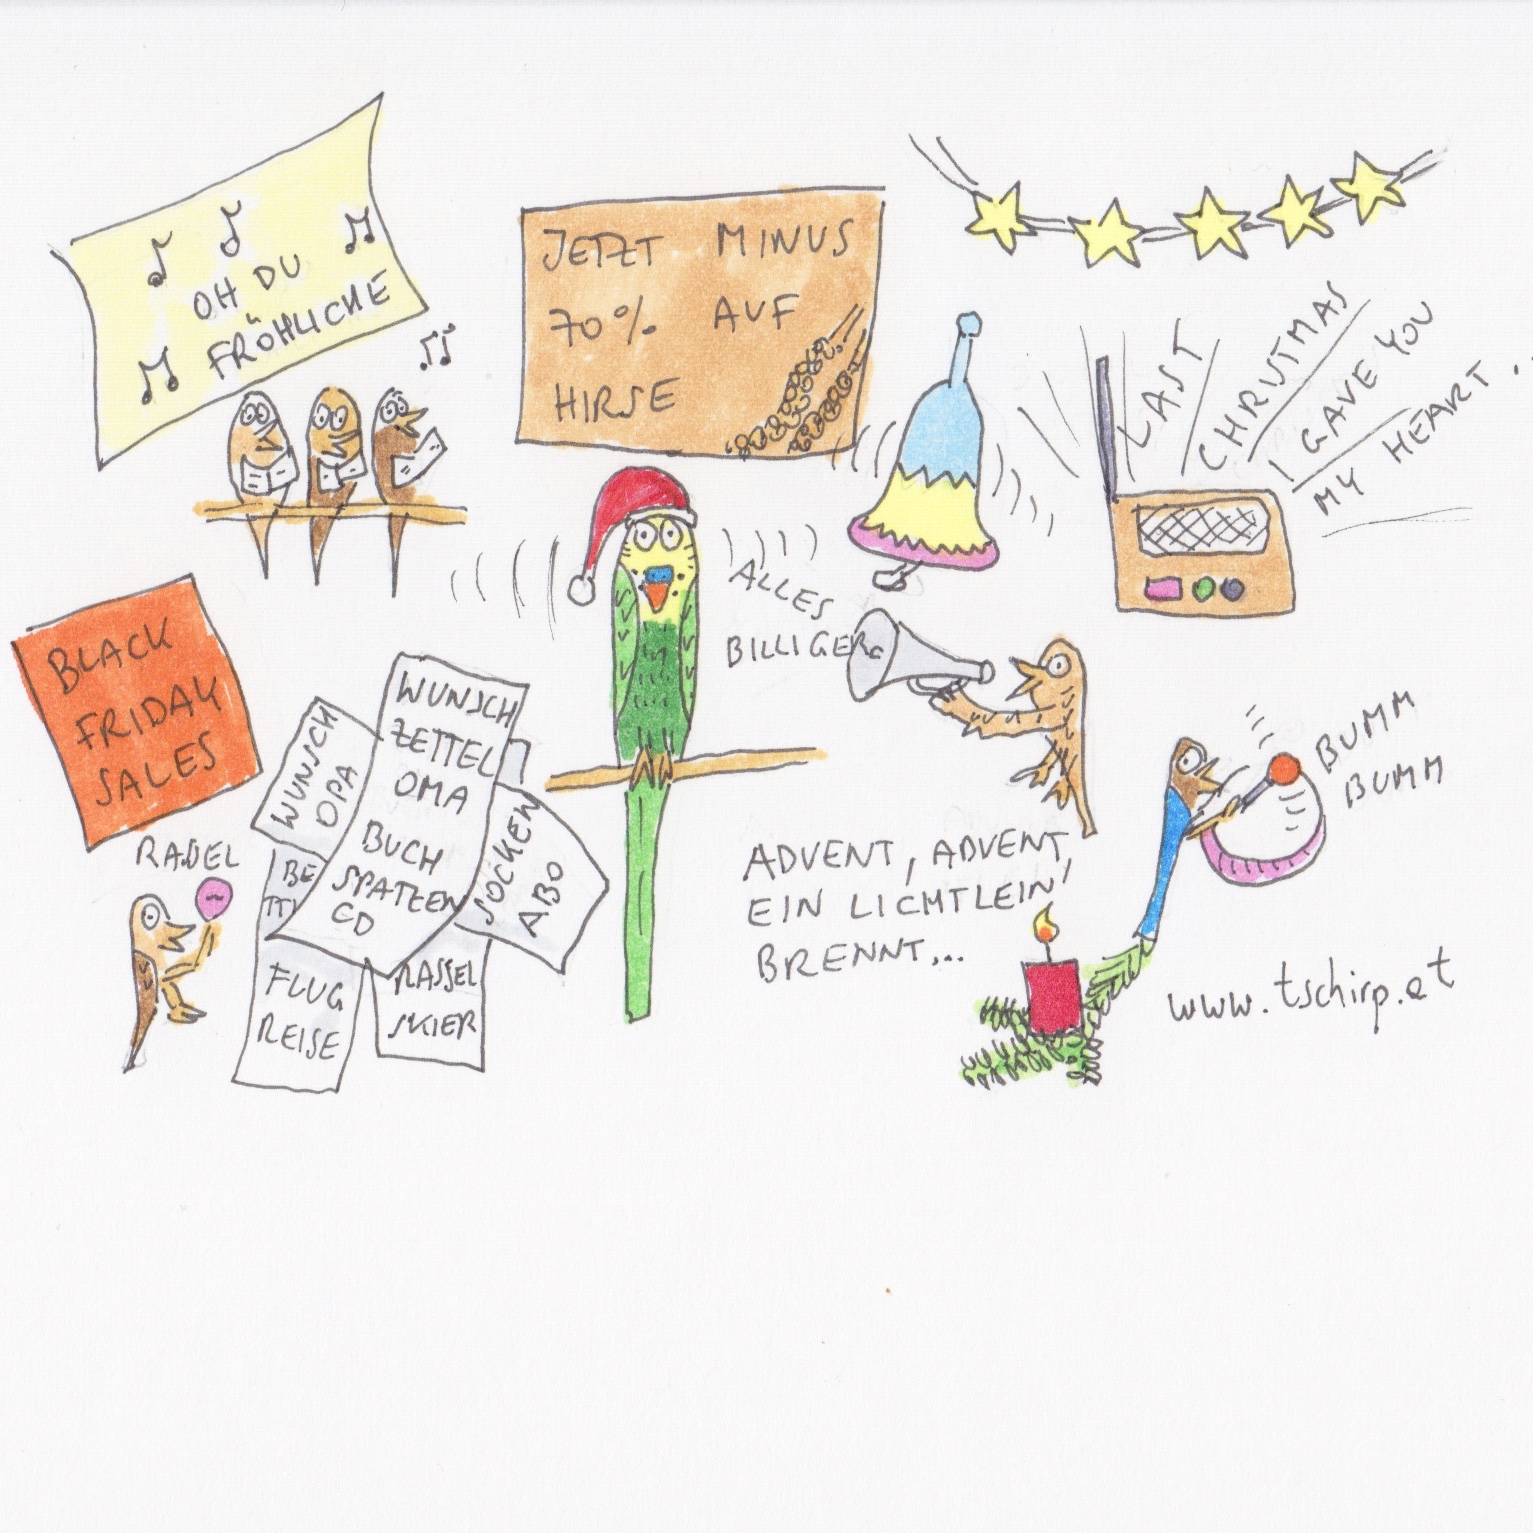 OH DU
FRÖHLICHE
JETZT MINUS
70% AUF
HIRSE
LAST
CHRISTMAS
I GAVE YOU
MY HEART...
BLACK
FRIDAY
SALES
ALLES
BILLIGER
WUNSCH
OPA
WUNSCH
ZETTEL
OMA
BUCH
SPATZEN
CD
SOCKEN
ABO
BE
TTI
FLUG
REISE
RASSEL
SKIER
BUMM
BUMM
ADVENT, ADVENT,
EIN LICHTLEIN
BRENNT...
www.tschirp.at